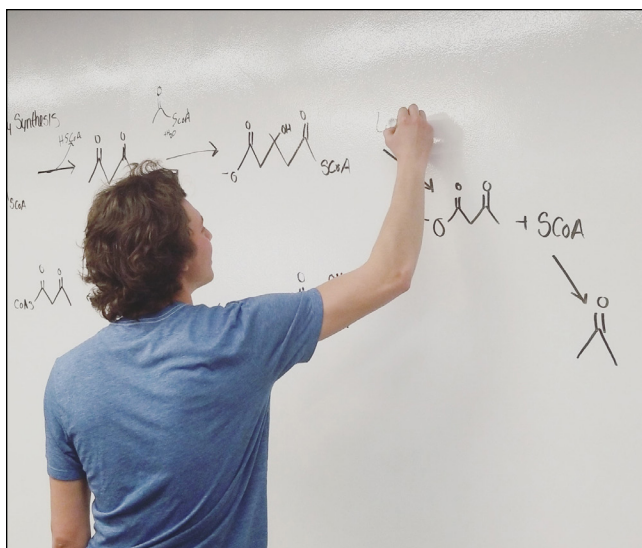 Synthesis
HSCoA
O
SCoA
H2O
O O
O OH O
-O SCoA
SCoA
-O O O + SCoA
O O
CoAS
O